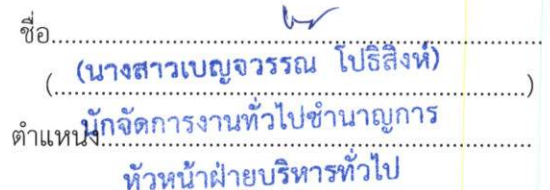 ชื่อ
(นางสาวเบญจวรรณ โปธิสิงห์)
ตำแหน่ง นักจัดการงานทั่วไปชำนาญการ
หัวหน้าฝ่ายบริหารทั่วไป